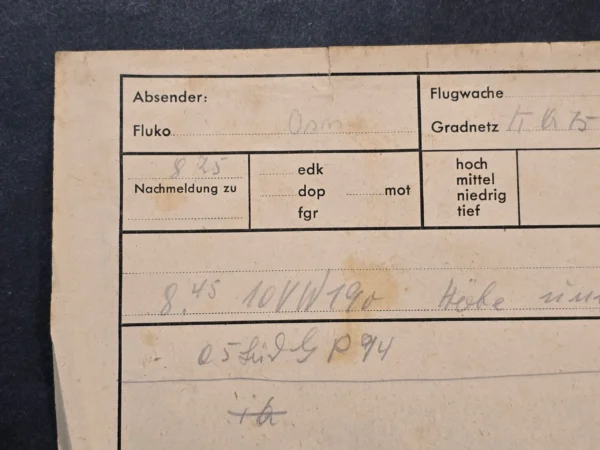 Absender:
Flugwache
Fluko
Gradnetz
8 25
Nachmeldung zu
edk
dop mot
fgr
hoch
mittel
niedrig
tief
8.45 10 Höhe
05 Süd G P 94